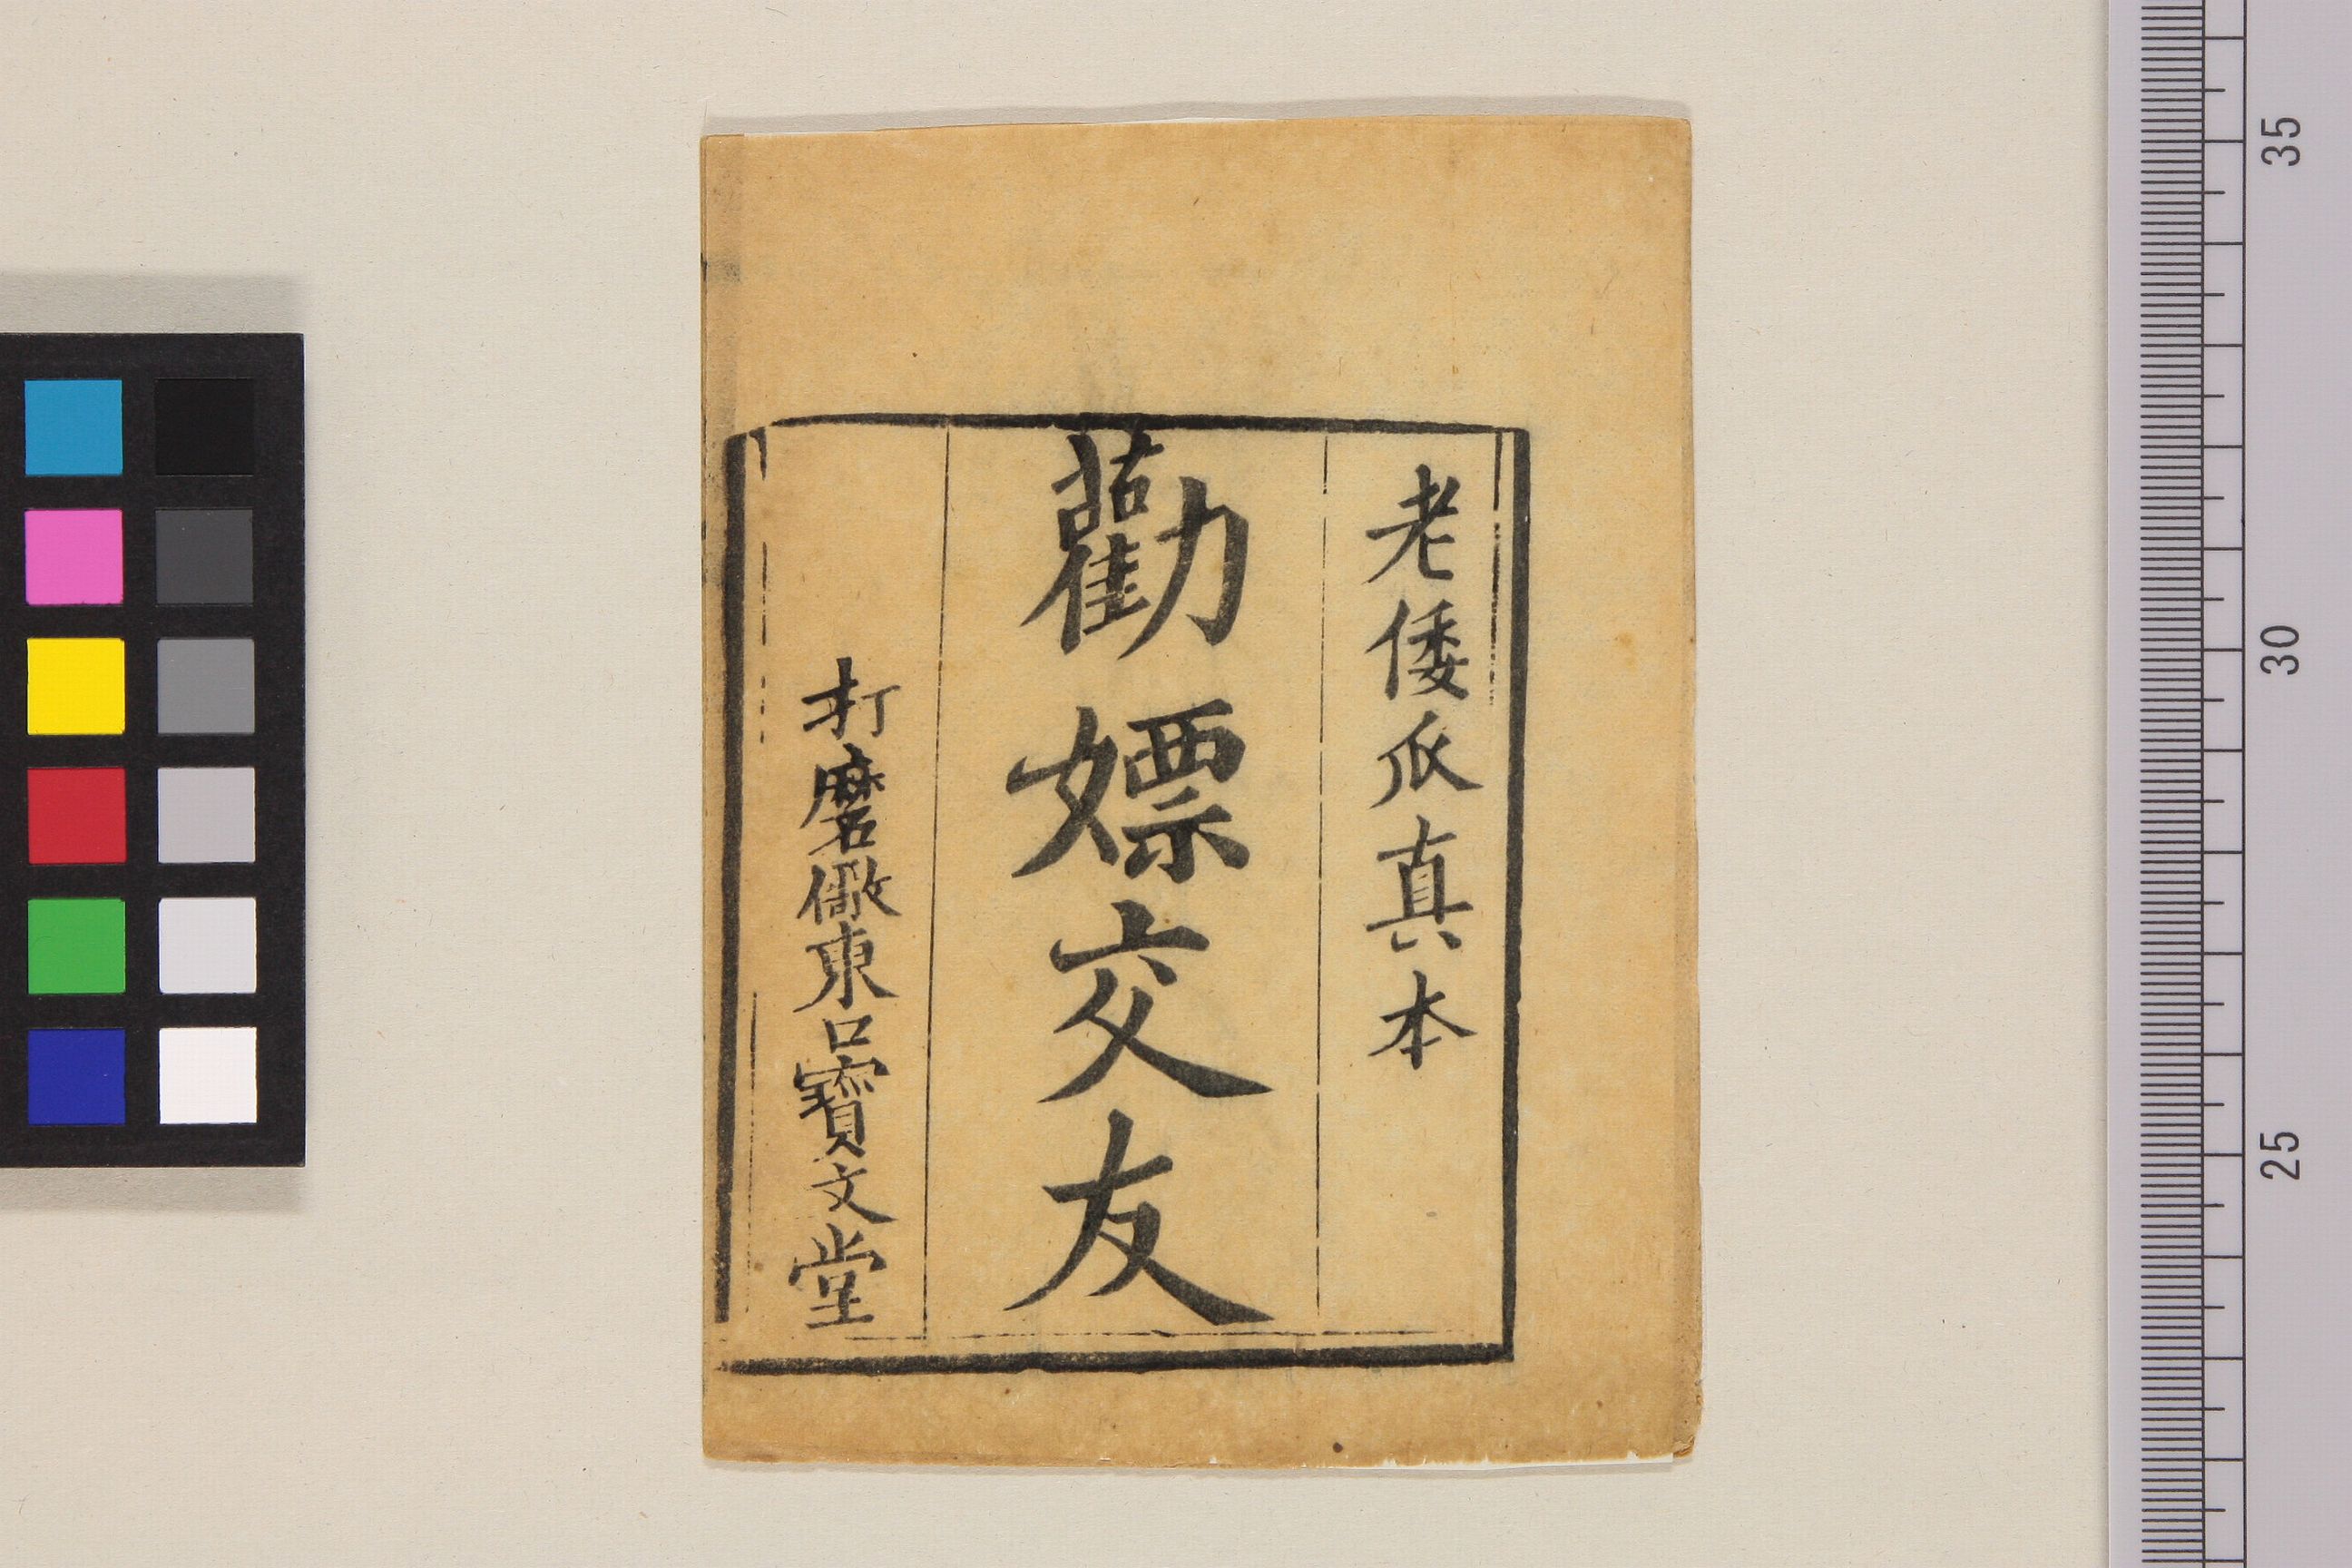 老倭瓜真本
勸嫖交友
打磨厰東口寶文堂
35
30
25